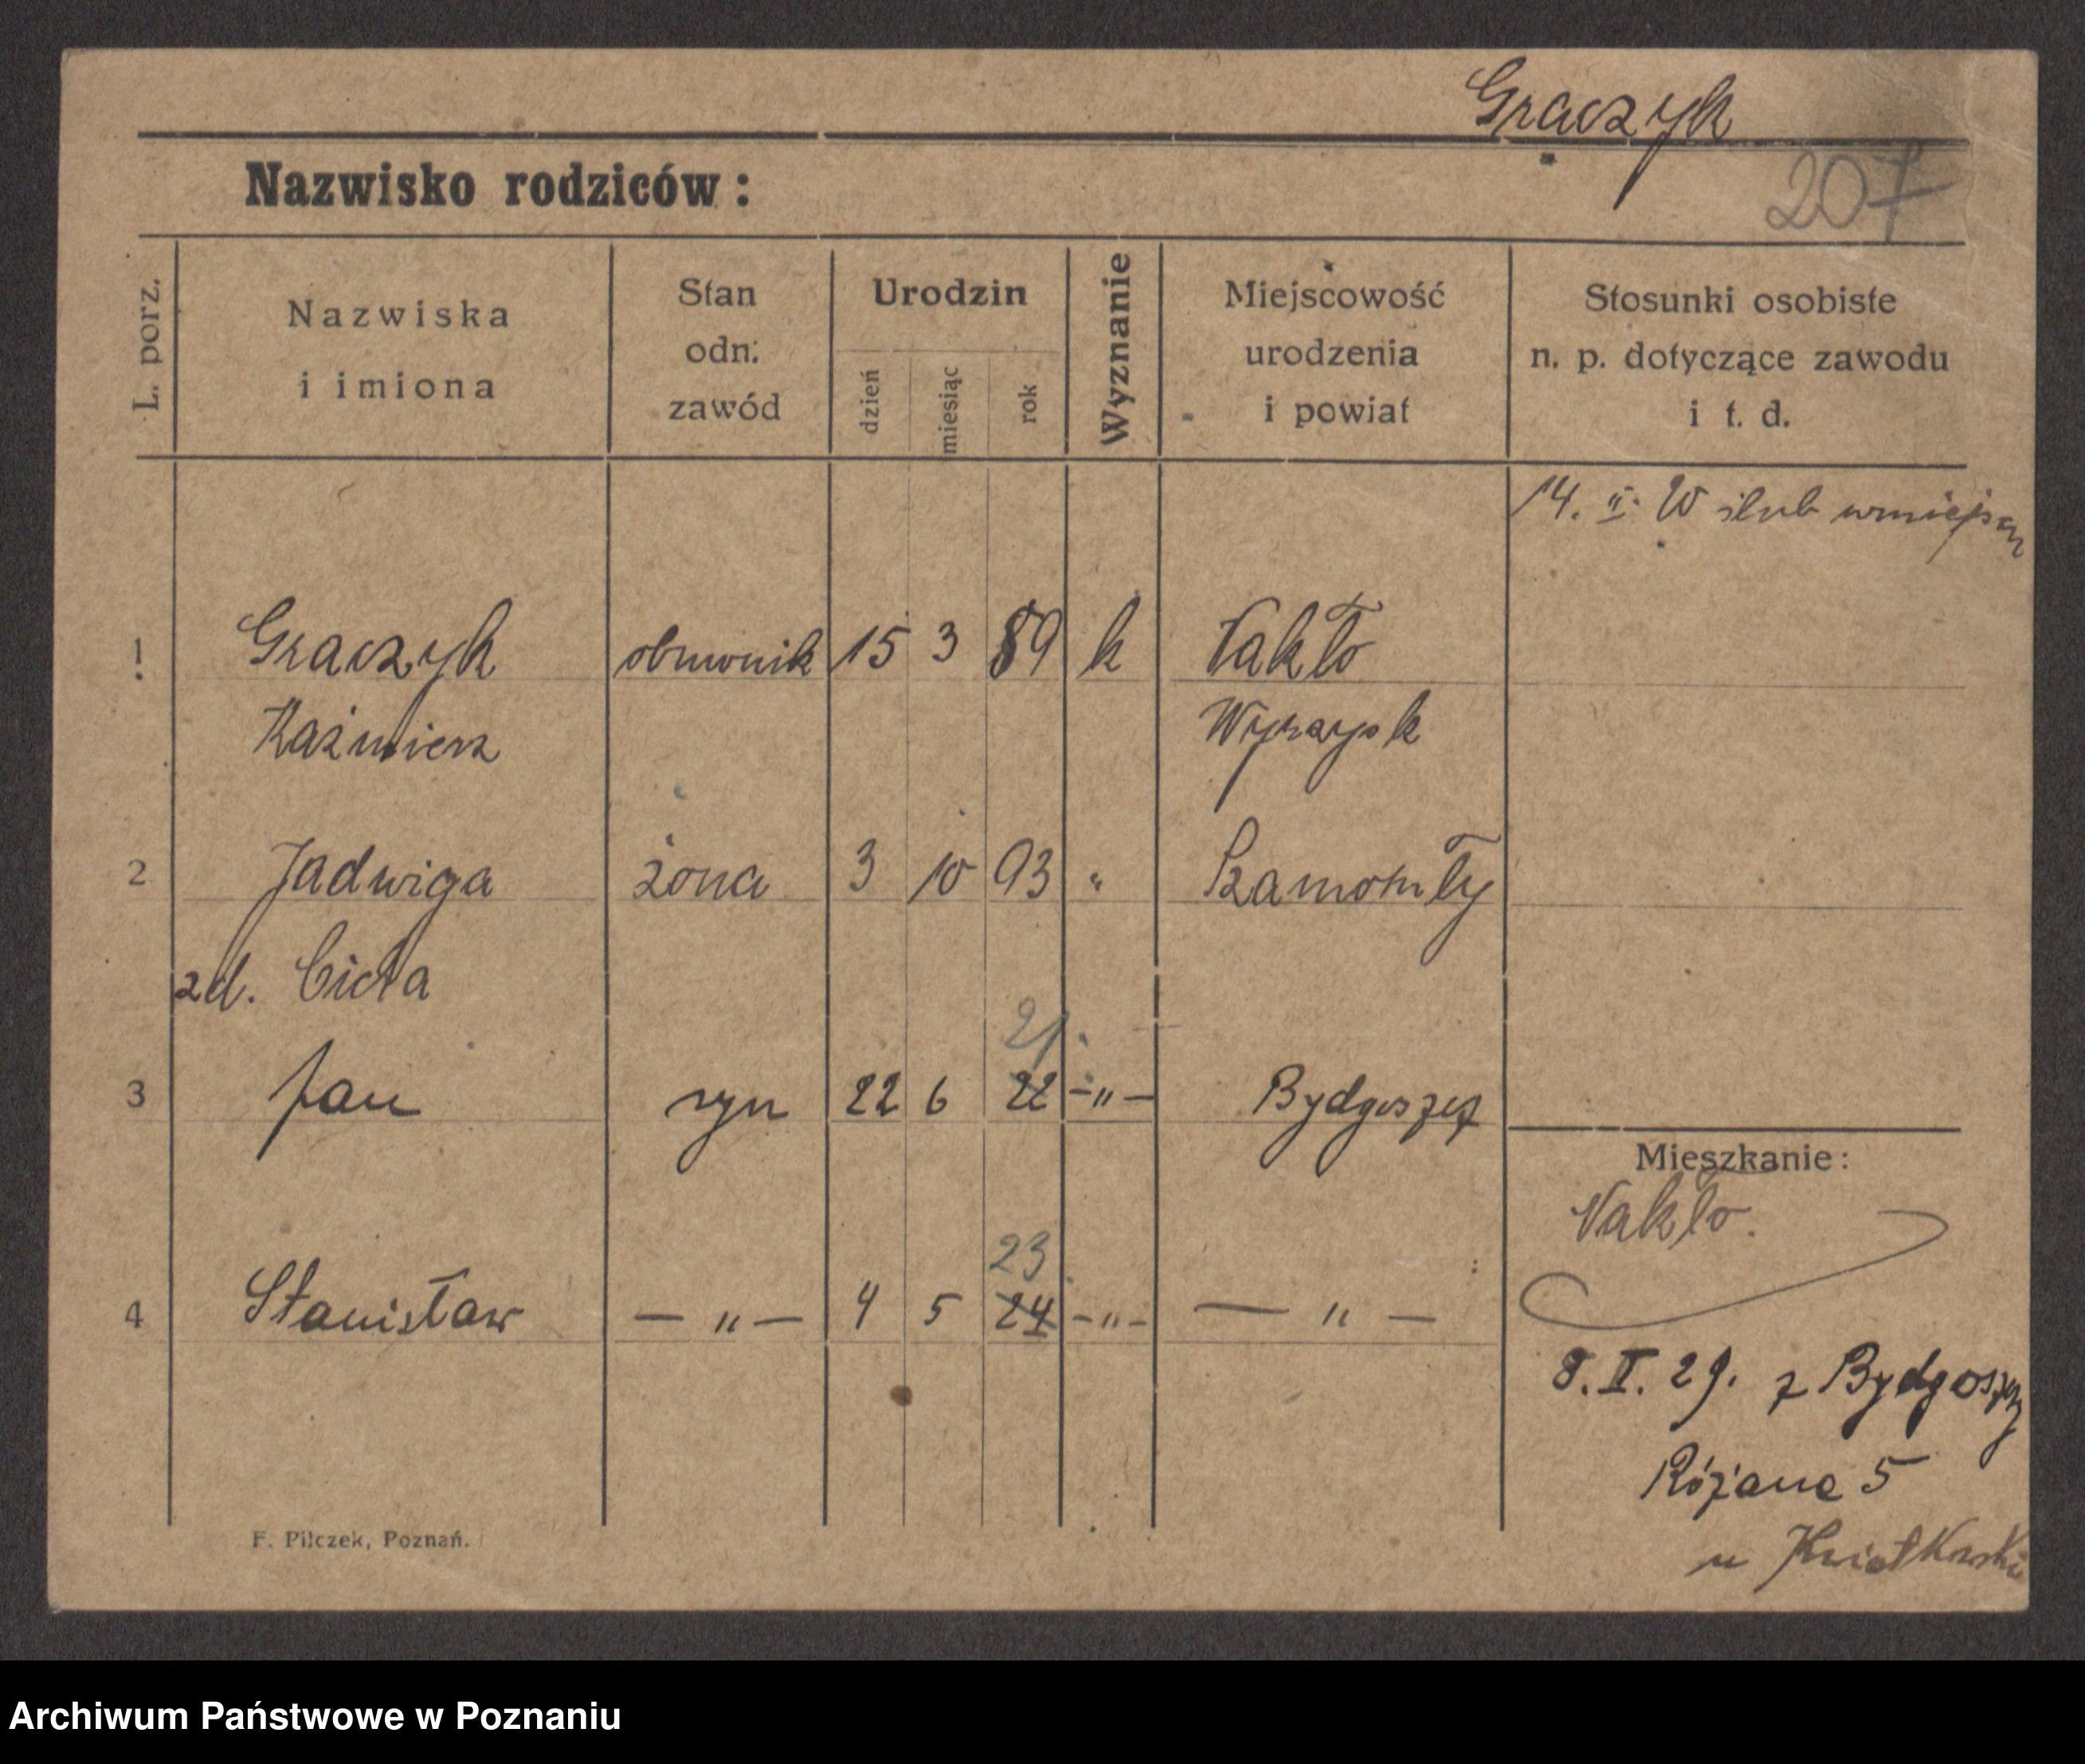 Graczyk
Nazwisko rodziców:
207
L. porz.
Nazwiska
i imiona
Stan
odn:
zawód
Urodzin
dzień
miesiąc
rok
Wyznanie
Miejscowość
urodzenia
i powiat
Stosunki osobiste
n. p. dotyczące zawodu
i t. d.
14. II. ślub
1 Graczyk obuwnik 15 3 89 k Nakło
Kaźmierz Wyrzysk
2 Jadwiga żona 3 10 93 " Szamotuły
zd. Cicha
21.
3 Jan syn 22 6 22 -"- Bydgoszcz
Mieszkanie:
Nakło.
23
4 Stanisław - " - 4 5 24 -"- - " -
8. I. 29. z Bydgoszczy
Różana 5
u
F. Pilczek, Poznań.
Archiwum Państwowe w Poznaniu